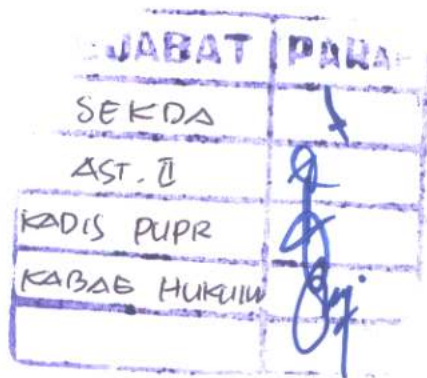 JABAT PARA
SEKDA
AST. II
KADIS PUPR
KABAG HUKUM